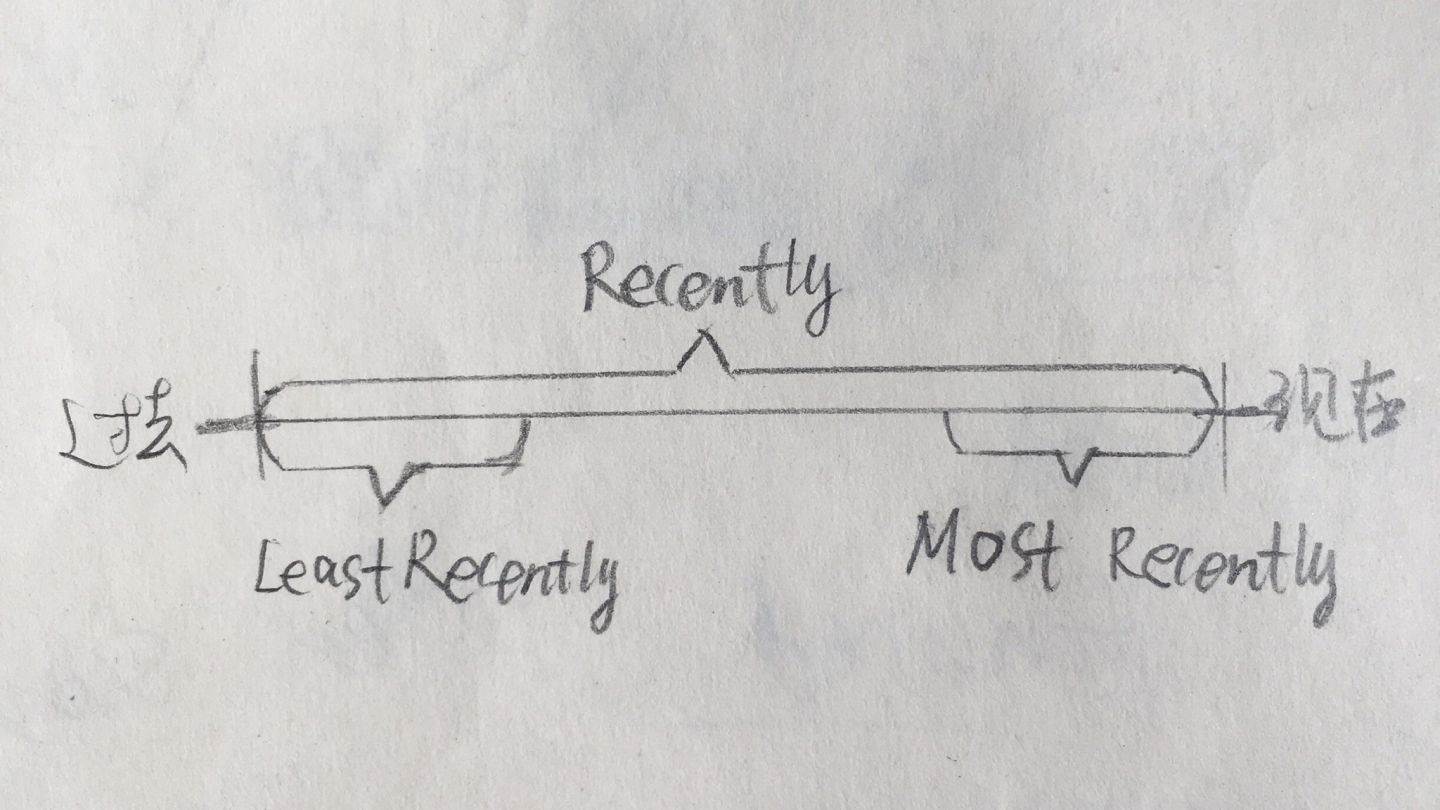 Recently
过去
现在
Least Recently
Most Recently